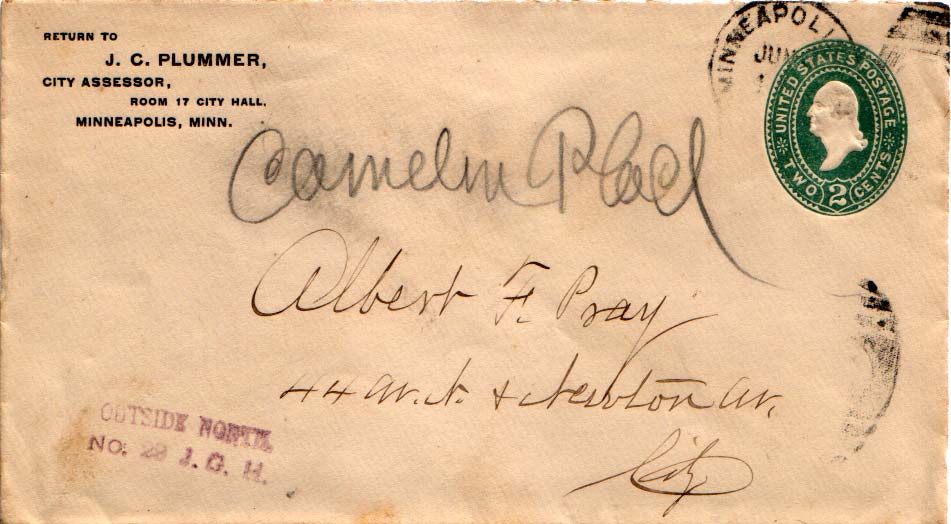 RETURN TO
J. C. PLUMMER,
CITY ASSESSOR,
ROOM 17 CITY HALL,
MINNEAPOLIS, MINN.
MINNEAPOLI
JUN
UNITED STATES POSTAGE
TWO 2 CENTS
Albert F. Pray
44 av. N. & Newton av.
City
OUTSIDE NORTH.
NO. 22 J. G. H.